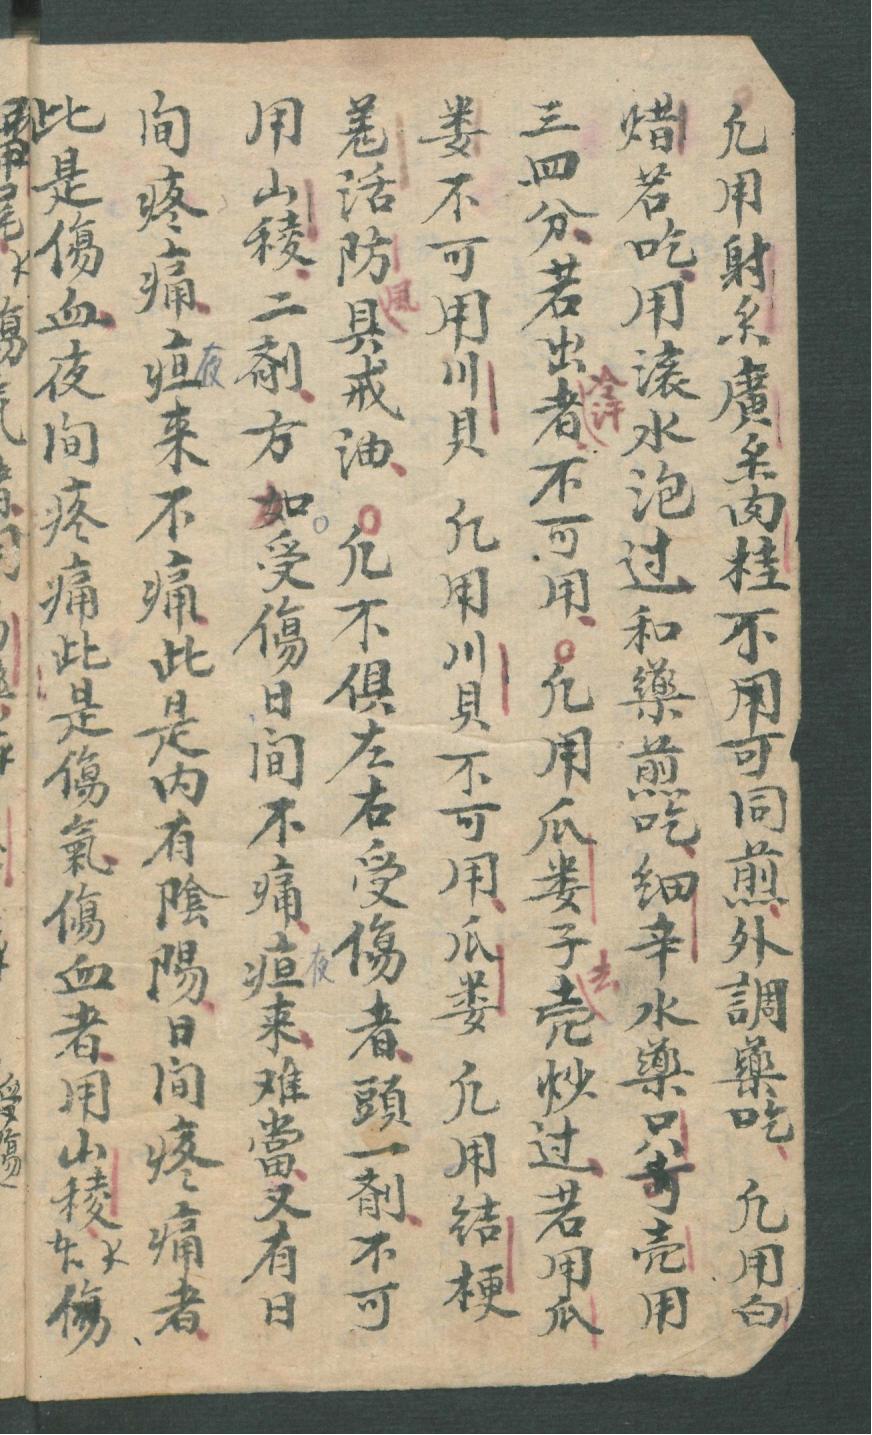 凢用射香廣香肉桂不用可同煎外調藥吃凢用白
蜡若吃用滚水泡过和藥煎吃細辛水藥只壳用
三四分若出冷汗者不可用凢用瓜娄子去壳炒过若用瓜
娄不可用川貝凢用川貝不可用瓜娄凢用结梗
羗活防風具戒油凢不俱左右受傷者頭一剤不可
用山稜二剤方如受傷日间不痛疸夜来难當又有日
间疼痛疸夜来不痛此是内有陰陽日间疼痛者
此是傷血夜间疼痛此是傷氣傷血者用山稜傷